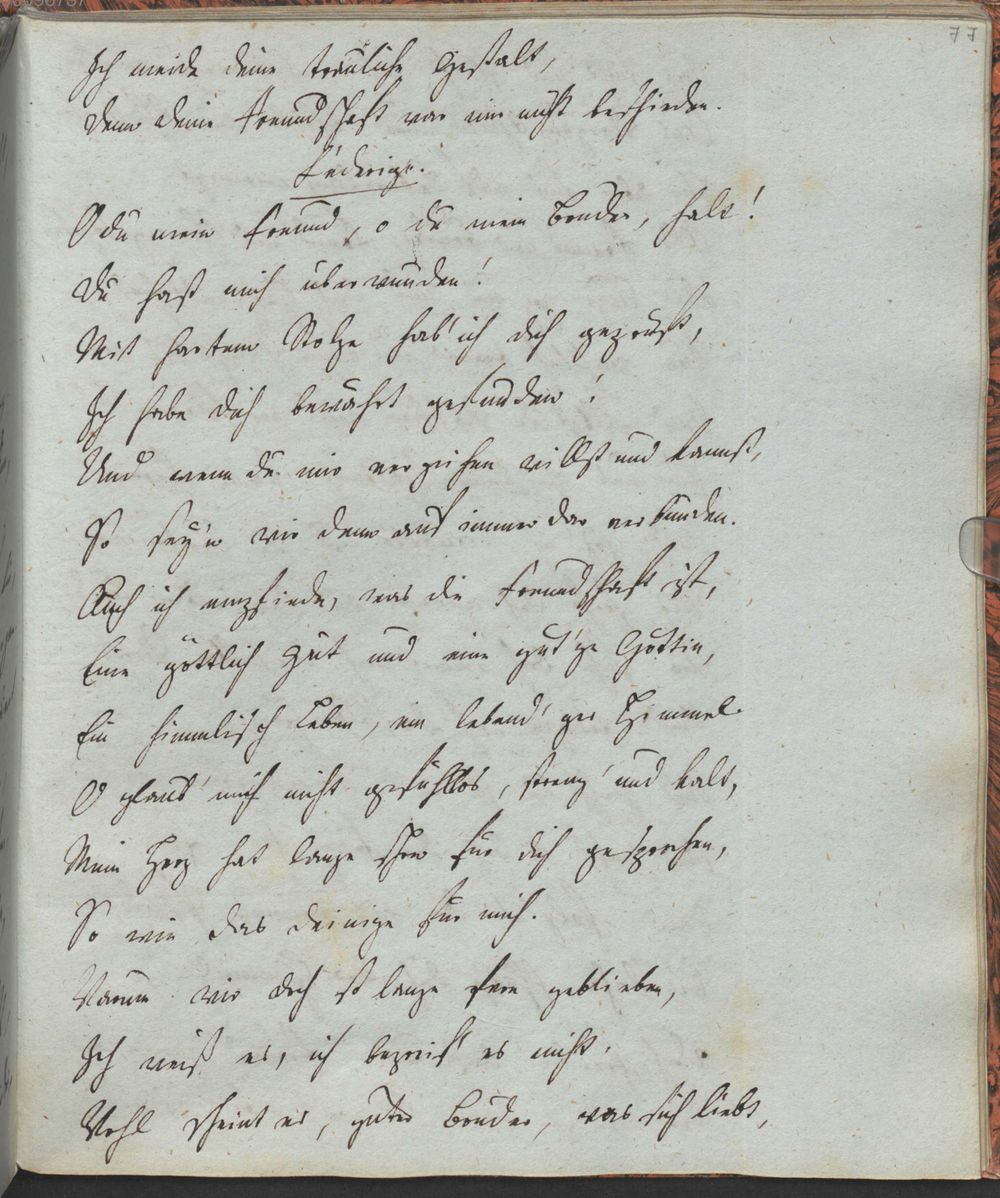 77
Ich meide deine trauliche Gestalt,
Denn deine Freundschaft war mir nicht beschieden.
Ludwig.
O du mein Freund, o du mein Bruder, halt!
Du hast mich überwunden!
Mit hartem Stolze hab' ich dich geprüft,
Ich habe dich bewährt gefunden!
Und wenn du mir verzeihen willst und kannst,
So sey'n wir denn auf immerdar verbunden.
Auch ich empfinde, was die Freundschaft ist,
Eine göttlich Gut und eine gut'ge Göttin,
Ein himmlisch Leben, ein lebend'ger Himmel.
O glaub' mich nicht gefühllos, streng' und kalt,
Mein Herz hat lange schon für dich gesprochen,
So wie das deinige für mich.
Warum wir doch so lange fern geblieben,
Ich weiß es, ich begreif' es nicht.
Wohl scheint es, guter Bruder, was sich liebt,